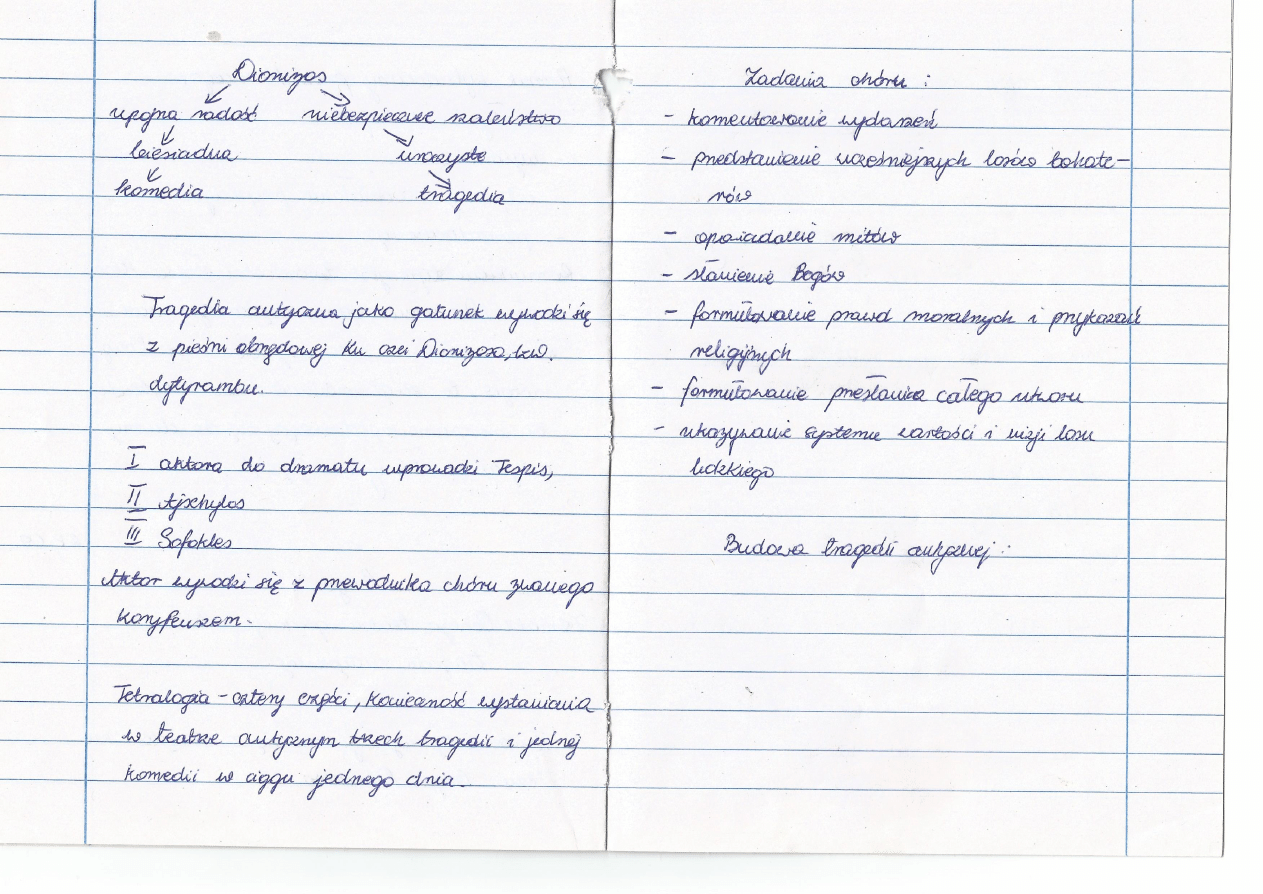 Dionizos
upojna radość niebezpieczne szaleństwo
biesiadna uroczyste
komedia tragedia
Tragedia antyczna jako gatunek wywodzi się
z pieśni obrzędowej ku czci Dionizosa, tzw.
dytyrambu.
I aktora do dramatu wprowadzi Tespis,
II Ajschylos
III Sofokles
Aktor wywodzi się z przewodnika chóru zwanego
koryfeuszem.
Tetralogia – cztery części, konieczność wystawiania
w teatrze antycznym trzech tragedii i jednej
komedii w ciągu jednego dnia.
Zadania chóru :
- komentowanie wydarzeń
- przedstawienie wcześniejszych losów bohate-
rów
- opowiadanie mitów
- sławienie Bogów
- formułowanie prawd moralnych i przykazań
religijnych
- formułowanie przesłania całego utworu
- ukazywanie systemu wartości i wizji losu
ludzkiego
Budowa tragedii antycznej :